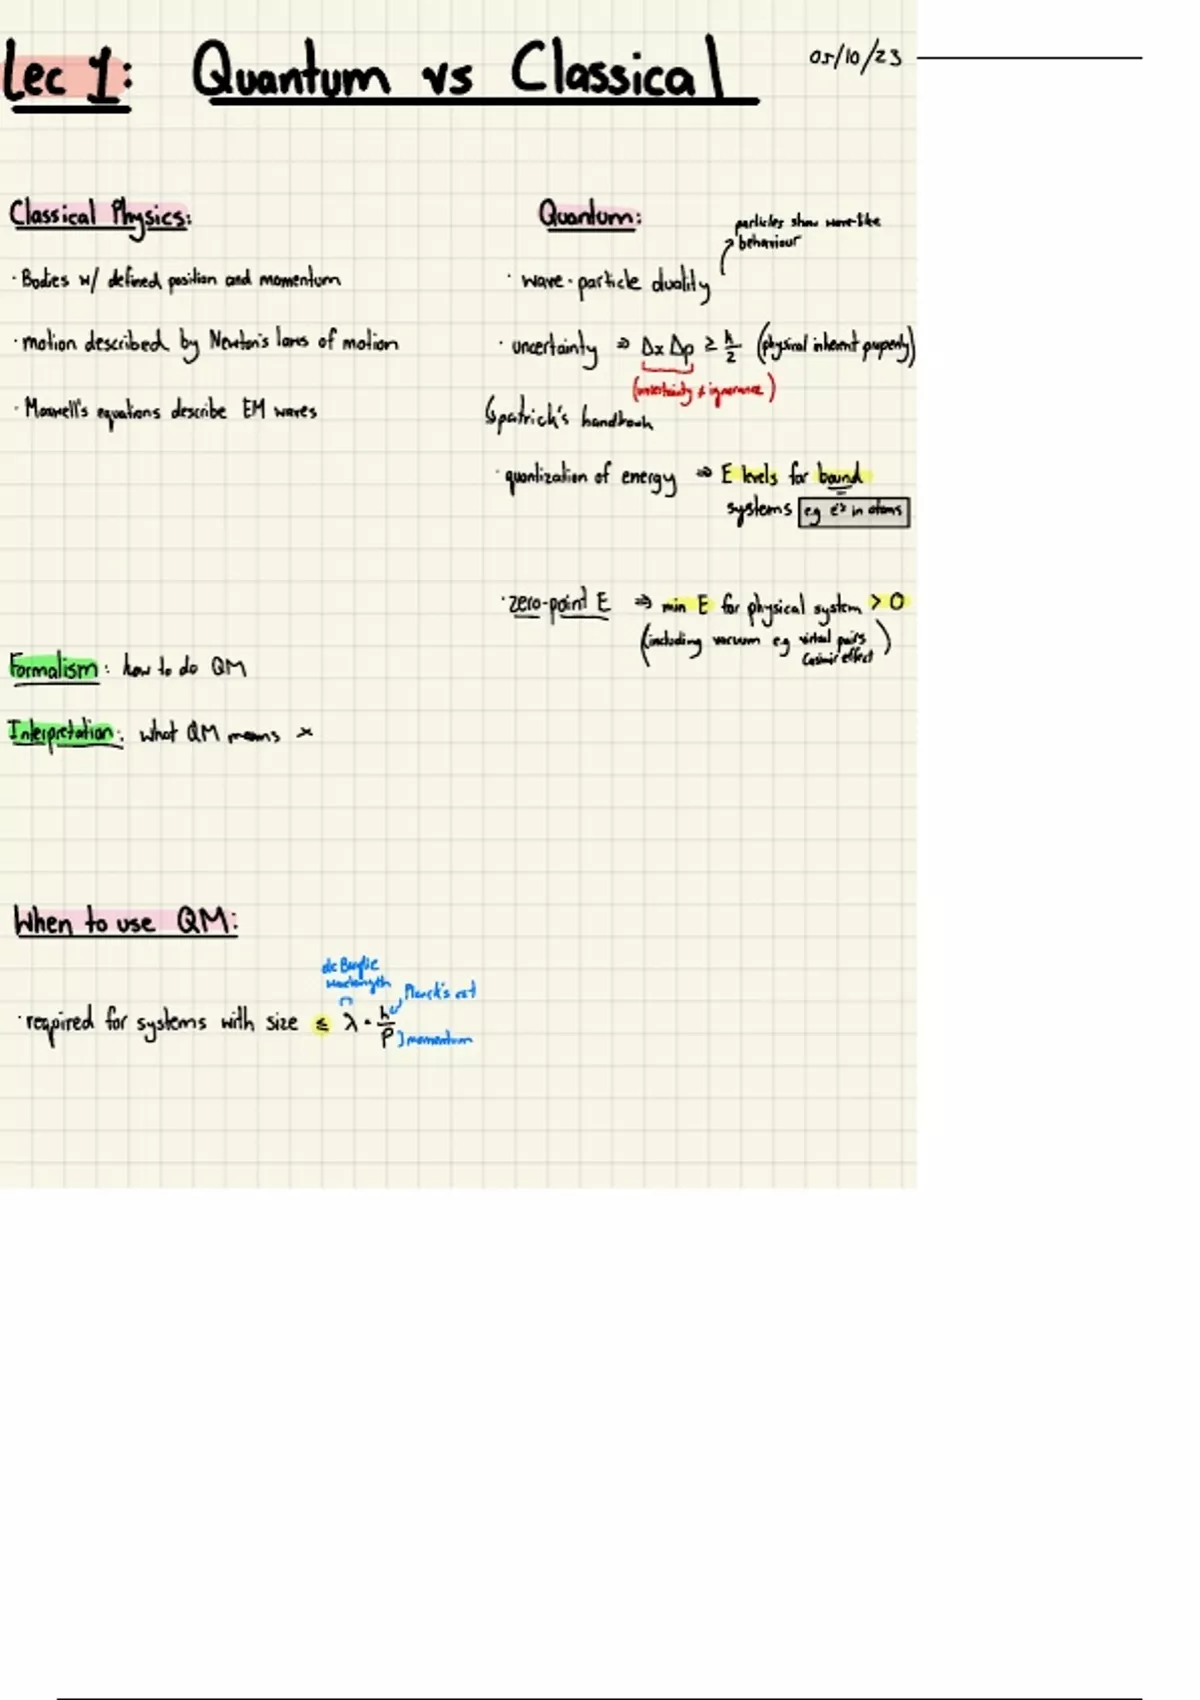 Lec 1: Quantum vs Classical
05/10/23
Classical Physics:
· Bodies w/ defined position and momentum
· motion described by Newton's laws of motion
· Maxwell's equations describe EM waves
Quantum:
particles show wave-like
behaviour
· wave-particle duality
· uncertainty ⇒ Δx Δp ≥ ħ/2 (physical inherent property)
(uncertainty ≠ ignorance)
↳ patrick's handbook
· quantization of energy ⇒ E levels for bound
systems eg e⁻s in atoms
· zero-point E ⇒ min E for physical system > 0
(including vacuum eg virtual pairs
Casimir effect)
Formalism: how to do QM
Interpretation: what QM means ×
When to use QM:
de Broglie
wavelength
Planck's cst
· required for systems with size ≤ λ = h/p
momentum